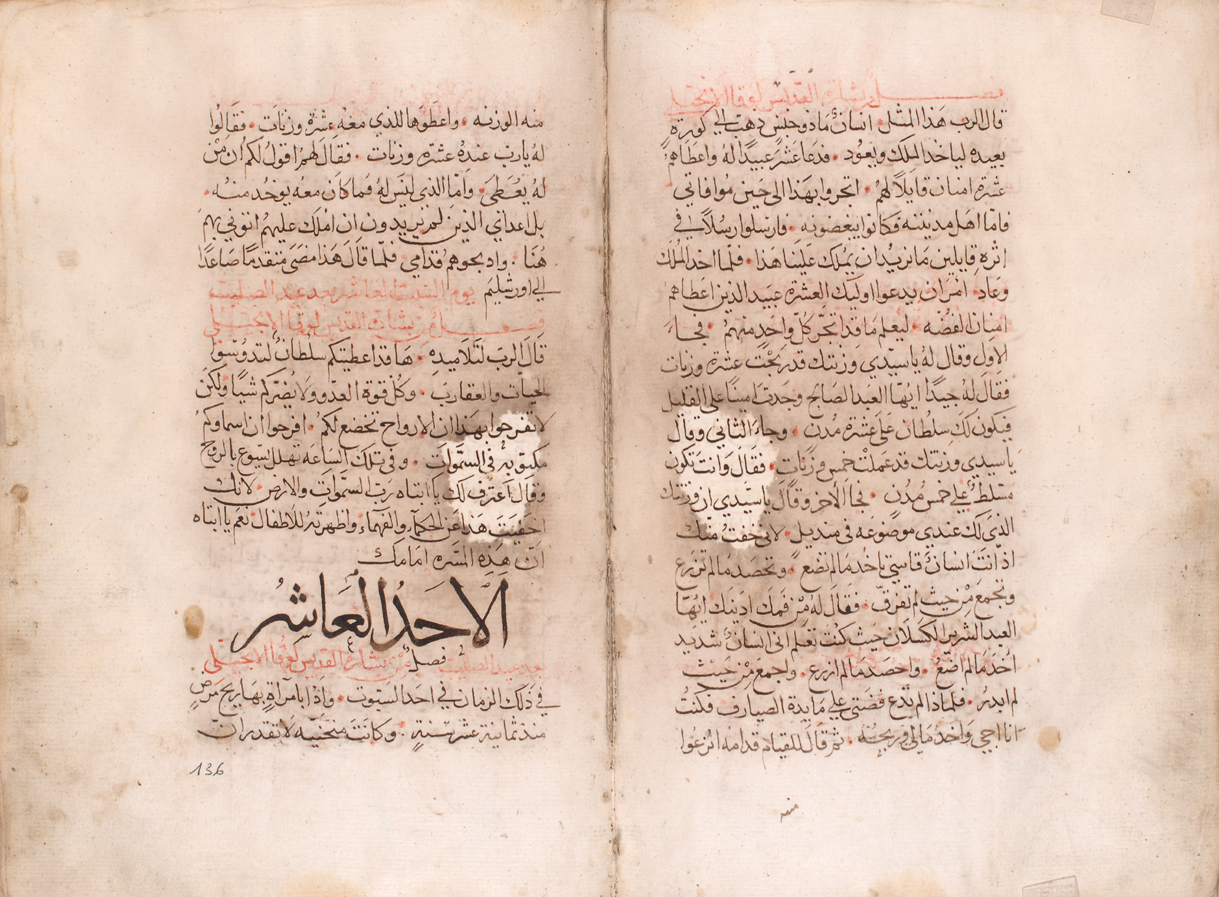 فصل من بشارة القديس لوقا الانجيلي
قال الرب هذا المثل • انسان ماذو جنس ذهب الي كورة
بعيده لياخد الملك ويعود • فدعا عشرة عبيدًا له واعطاهم
عشرة امنان قايلاً لهم • اتجروا بهذا الى حين موافاتي
فاما اهل مدينته فكانوا يبغضونه • فارسلوا رسلاً في
اثره قايلين ما نريد ان يملك علينا هذا • فلما اخد الملك
وعاد • امر ان يدعوا اوليك العشرة عبيد الذين اعطاهم
امنان الفضه • ليعلم ما قد اتجر كل واحد منهم • فجا
الاول وقال له ياسيدي وزنتك قد ربحت عشرة وزنات
فقال له جيدًا ايها العبد الصالح وجدت امينًا على القليل
فيكون لك سلطان على عشرة مدن • وجاء الثاني وقال
ياسيدي وزنتك قد عملت خمس وزنات • فقال وانت تكون
مسلط علي خمس مدن • فجا الآخر وقال ياسيدي ان وزنتك
الذي لك عندي موضوعه في منديل • لاني خفت منك
اذ انت انسان قاسي تاخد مالم تضع • وتحصد مالم تزرع
وتجمع من حيث لم تفرق • فقال له من فمك ادينك ايها
العبد الشرير الكسلان حيث كنت تعلم اني انسان شديد
اخد مالم اضع • واحصد مالم ازرع • واجمع من حيث
لم ابدر • فلماذا لم تدع فضتي علي مايدة الصيارف فكنت
انا اجي واخد مالي مع ربحه • ثم قال للقيام قدامه انزعوا
منه الوزنه • واعطوها للذي معه عشرة وزنات • فقالوا
له يارب عنده عشرة وزنات • فقال لهم اقول لكم ان من
له يعطى • واما الذي ليس له فما كان معه يوخد منه •
بل اعداي الذين لم يريدون ان املك عليهم اتوني بهم
هنا • وادبحوهم قدامي • فلما قال هذا مضى متقدمًا صاعدًا
الي اورشليم يوم السبت العاشر بعد عيد الصليب
فصل من بشارة القديس لوقا الانجيلي
قال الرب لتلاميده • ها قد اعطيتكم سلطان لتدوسوا
الحيات والعقارب • وكل قوة العدو ولا يضركم شيًا ولكن
لا تفرحوا بهذا ان الارواح تخضع لكم • افرحوا ان اسماوكم
مكتوبه في السموات • وفي تلك الساعه تهلل يسوع بالروح
وقال اعترف لك يا ابتاه رب السموات والارض لانك
اخفيت هذا عن الحكماء والفهماء واظهرته للاطفال نعم يا ابتاه
ان هذه المسره امامك
الاحد العاشر
بعد عيد الصليب فصل من بشارة القديس لوقا الانجيلي
في ذلك الزمان في احد السبوت • واذا بامراةٍ بها ريح مرضٍ
منذ ثمانية عشر سنةٍ • وكانت منحنيه لا تقدر ان
136